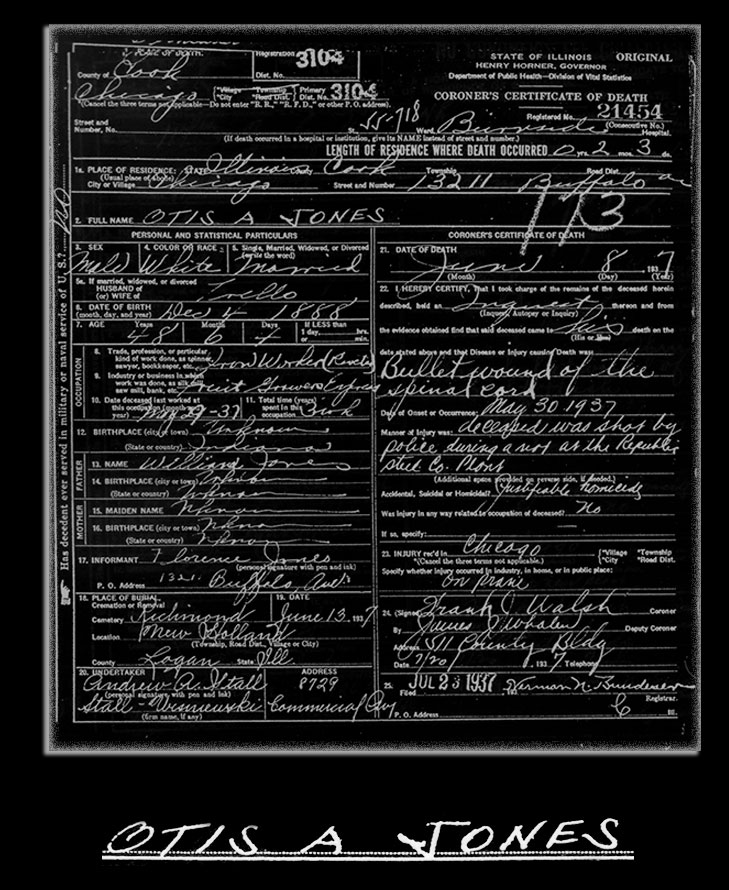 1. PLACE OF DEATH.
County of Cook
Registration Dist. No. 3104
STATE OF ILLINOIS ORIGINAL
HENRY HORNER, GOVERNOR
Department of Public Health—Division of Vital Statistics
CORONER'S CERTIFICATE OF DEATH
Chicago *Village *Township *City *Road Dist. Primary Dist. No. 3104
*(Cancel the three terms not applicable—Do not enter "R. R.," "R. F. D.," or other P. O. address).
Registered No. 21454
(Consecutive No.)
Street and Number, No. St. 55-718 Ward, Burnside Hospital.
(If death occurred in a hospital or institution, give its NAME instead of street and number.)
LENGTH OF RESIDENCE WHERE DEATH OCCURRED 0 yrs. 2 mos. 3 ds.
1a. PLACE OF RESIDENCE: STATE Illinois Cook Township Road Dist.
(Usual place of abode)
City or Village Chicago Street and Number 13211 Buffalo av
2. FULL NAME OTIS A JONES
173
PERSONAL AND STATISTICAL PARTICULARS
3. SEX Male
4. COLOR OR RACE White
5. Single, Married, Widowed, or Divorced (write the word) Married
5a. If married, widowed, or divorced
HUSBAND OF
(or) WIFE of
6. DATE OF BIRTH (month, day, and year) Dec 4 1888
7. AGE Years 48 Months 6 Days 4 If LESS than 1 day, hrs. or min.
OCCUPATION
8. Trade, profession, or particular kind of work done, as spinner, sawyer, bookkeeper, etc. Iron Worker
9. Industry or business in which work was done, as silk mill, saw mill, bank, etc. Fruit Growers Express
10. Date deceased last worked at this occupation (month and year) May 29-37
11. Total time (years) spent in this occupation
12. BIRTHPLACE (city or town) Unknown
(State or country) Indiana
FATHER
13. NAME William Jones
14. BIRTHPLACE (city or town) Unknown
(State or country) Unknown
MOTHER
15. MAIDEN NAME Unknown
16. BIRTHPLACE (city or town) Unknown
(State or country) Unknown
17. INFORMANT Florence Jones
(personal signature with pen and ink)
P. O. Address 13211 Buffalo Ave
18. PLACE OF BURIAL, Cremation or Removal 19. DATE
Cemetery Richmond June 13, 1937
Location New Holland
(Township, Road Dist., Village or City)
County Logan State Ill.
20. UNDERTAKER ADDRESS
Andrew A. Stall 8729
(personal signature with pen and ink)
Stall - Wisniewski Commercial Av
(firm name, if any)
Has decedent ever served in military or naval service of U. S.? No
CORONER'S CERTIFICATE OF DEATH
21. DATE OF DEATH
June 8, 1937
(Month) (Day) (Year)
22. I HEREBY CERTIFY, That I took charge of the remains of the deceased herein
described, held an Inquest thereon and from
(Inquest, Autopsy or Inquiry)
the evidence obtained find that said deceased came to his death on the
(His or Her)
date stated above and that Disease or Injury causing Death was:
Bullet wound of the
spinal cord
Date of Onset or Occurrence: May 30 1937
Manner of Injury was: deceased was shot by
police during a riot at the Republic
Steel Co. Plant
(Additional space provided on reverse side, if needed.)
Accidental, Suicidal or Homicidal? Justifiable homicide
Was injury in any way related to occupation of deceased? No
If so, specify:
23. INJURY rec'd in Chicago *Village *Township *City *Road Dist.
*(Cancel the three terms not applicable).
Specify whether injury occurred in industry, in home, or in public place:
24. (Signed) Frank J Walsh Coroner
By James J Whalen Deputy Coroner
Address 511 County Bldg
Date 7/20 1937 Telephone
25. Filed JUL 23 1937 193 Herman N. Bundesen Registrar.
P. O. Address Ill.
OTIS A JONES